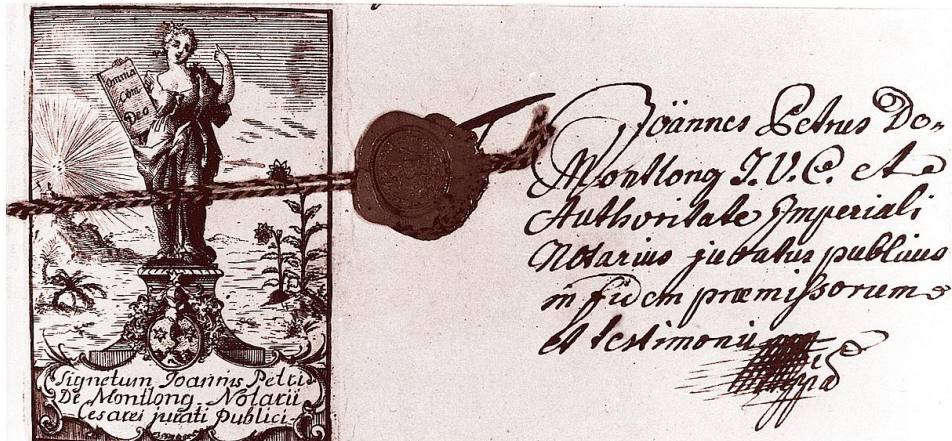 Omnia
Cum
Deo
Signetum Joannis Petri
De Montlong Notarii
Cesarei jurati Publici
Joännes Petrus De-
Montlong I.V.C. et
Authoritate Imperiali
Notarius juratus publicus
in fidem præmissorum
et testimonium